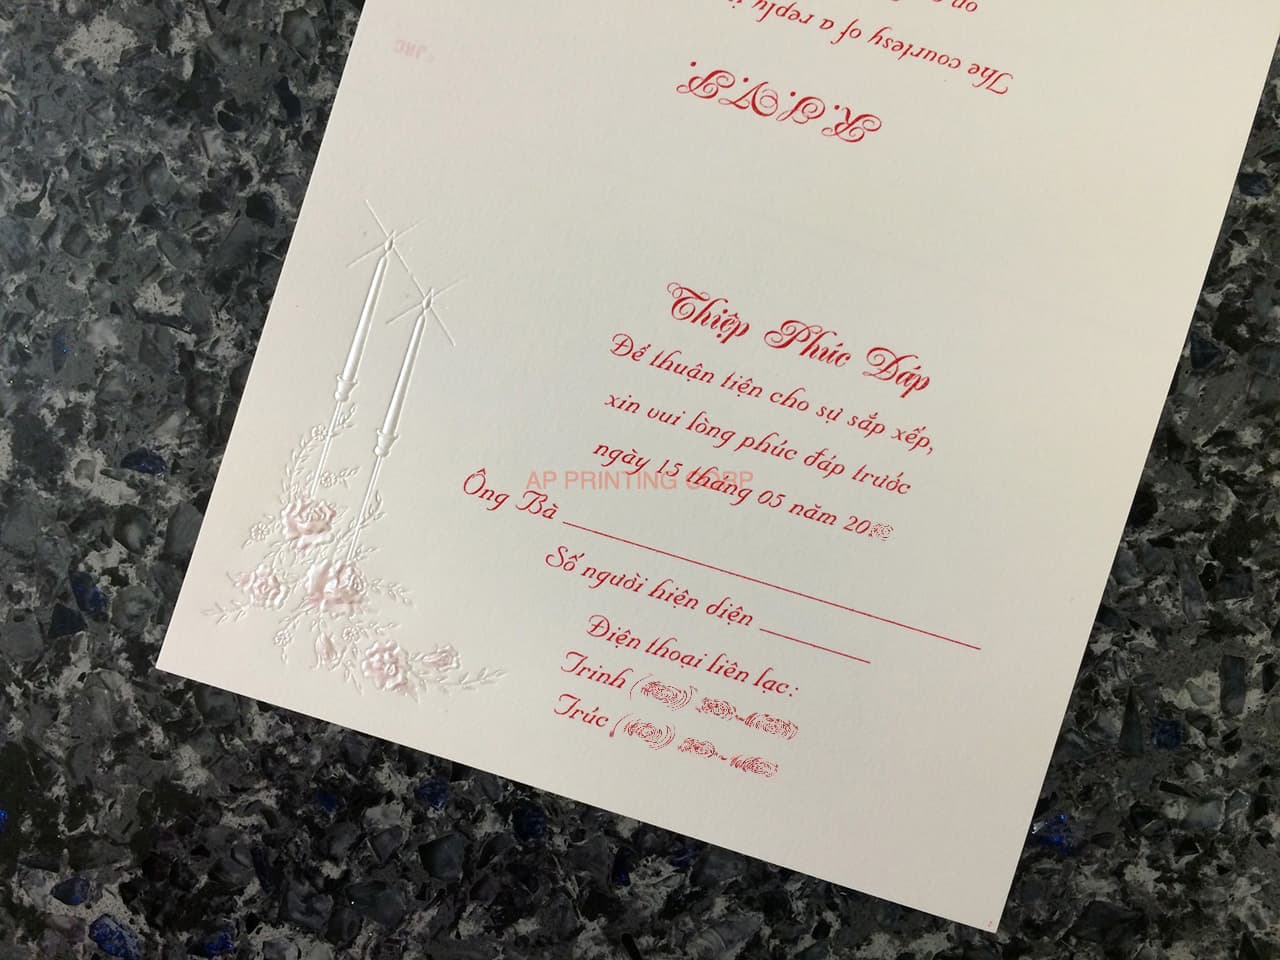 The courtesy of a reply is
R.S.V.P.
Thiệp Phúc Đáp
Để thuận tiện cho sự sắp xếp,
xin vui lòng phúc đáp trước
ngày 15 tháng 05 năm 20
AP PRINTING CORP
Ông Bà
Số người hiện diện
Điện thoại liên lạc:
Trinh
Trúc